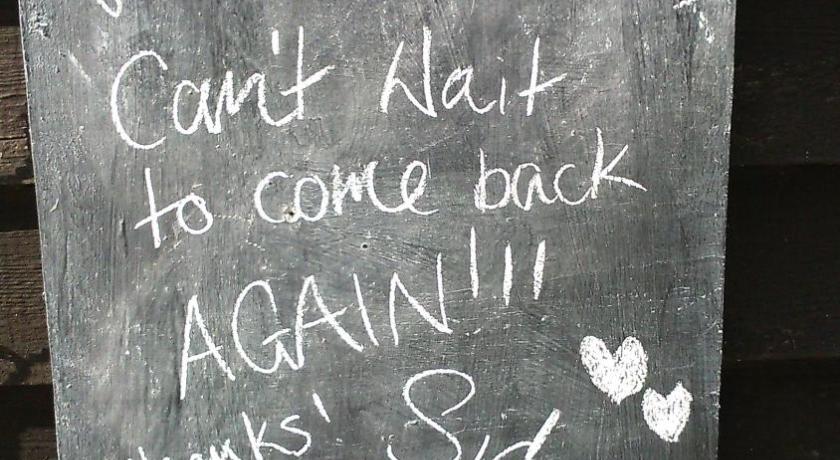 Can't Wait
to come back
AGAIN!!!
thanks!